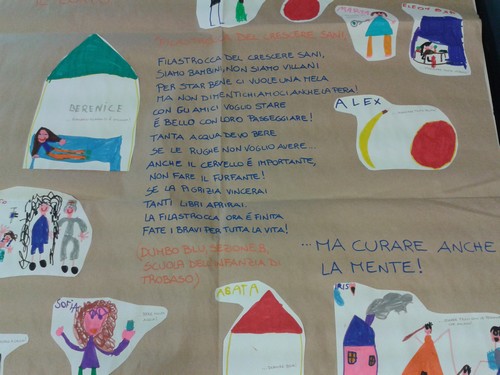 MARTINA
FILASTROCCA DEL CRESCERE SANI
FILASTROCCA DEL CRESCERE SANI,
SIAMO BAMBINI, NON SIAMO VILLANI
PER STAR BENE CI VUOLE UNA MELA
MA NON DIMENTICHIAMOCI ANCHE LA PERA!
CON GLI AMICI VOGLIO STARE
È BELLO CON LORO PASSEGGIARE!
TANTA ACQUA DEVO BERE
SE LE RUGHE NON VOGLIO AVERE...
ANCHE IL CERVELLO È IMPORTANTE,
NON FARE IL FURFANTE!
SE LA PIGRIZIA VINCERAI
TANTI LIBRI APRIRAI.
LA FILASTROCCA ORA È FINITA
FATE I BRAVI PER TUTTA LA VITA!
(DUMBO BLU, SEZIONE B,
SCUOLA DELL'INFANZIA DI
TROBASO)
BERENICE
ALEX
...MA CURARE ANCHE
LA MENTE!
SOFIA
AGATA